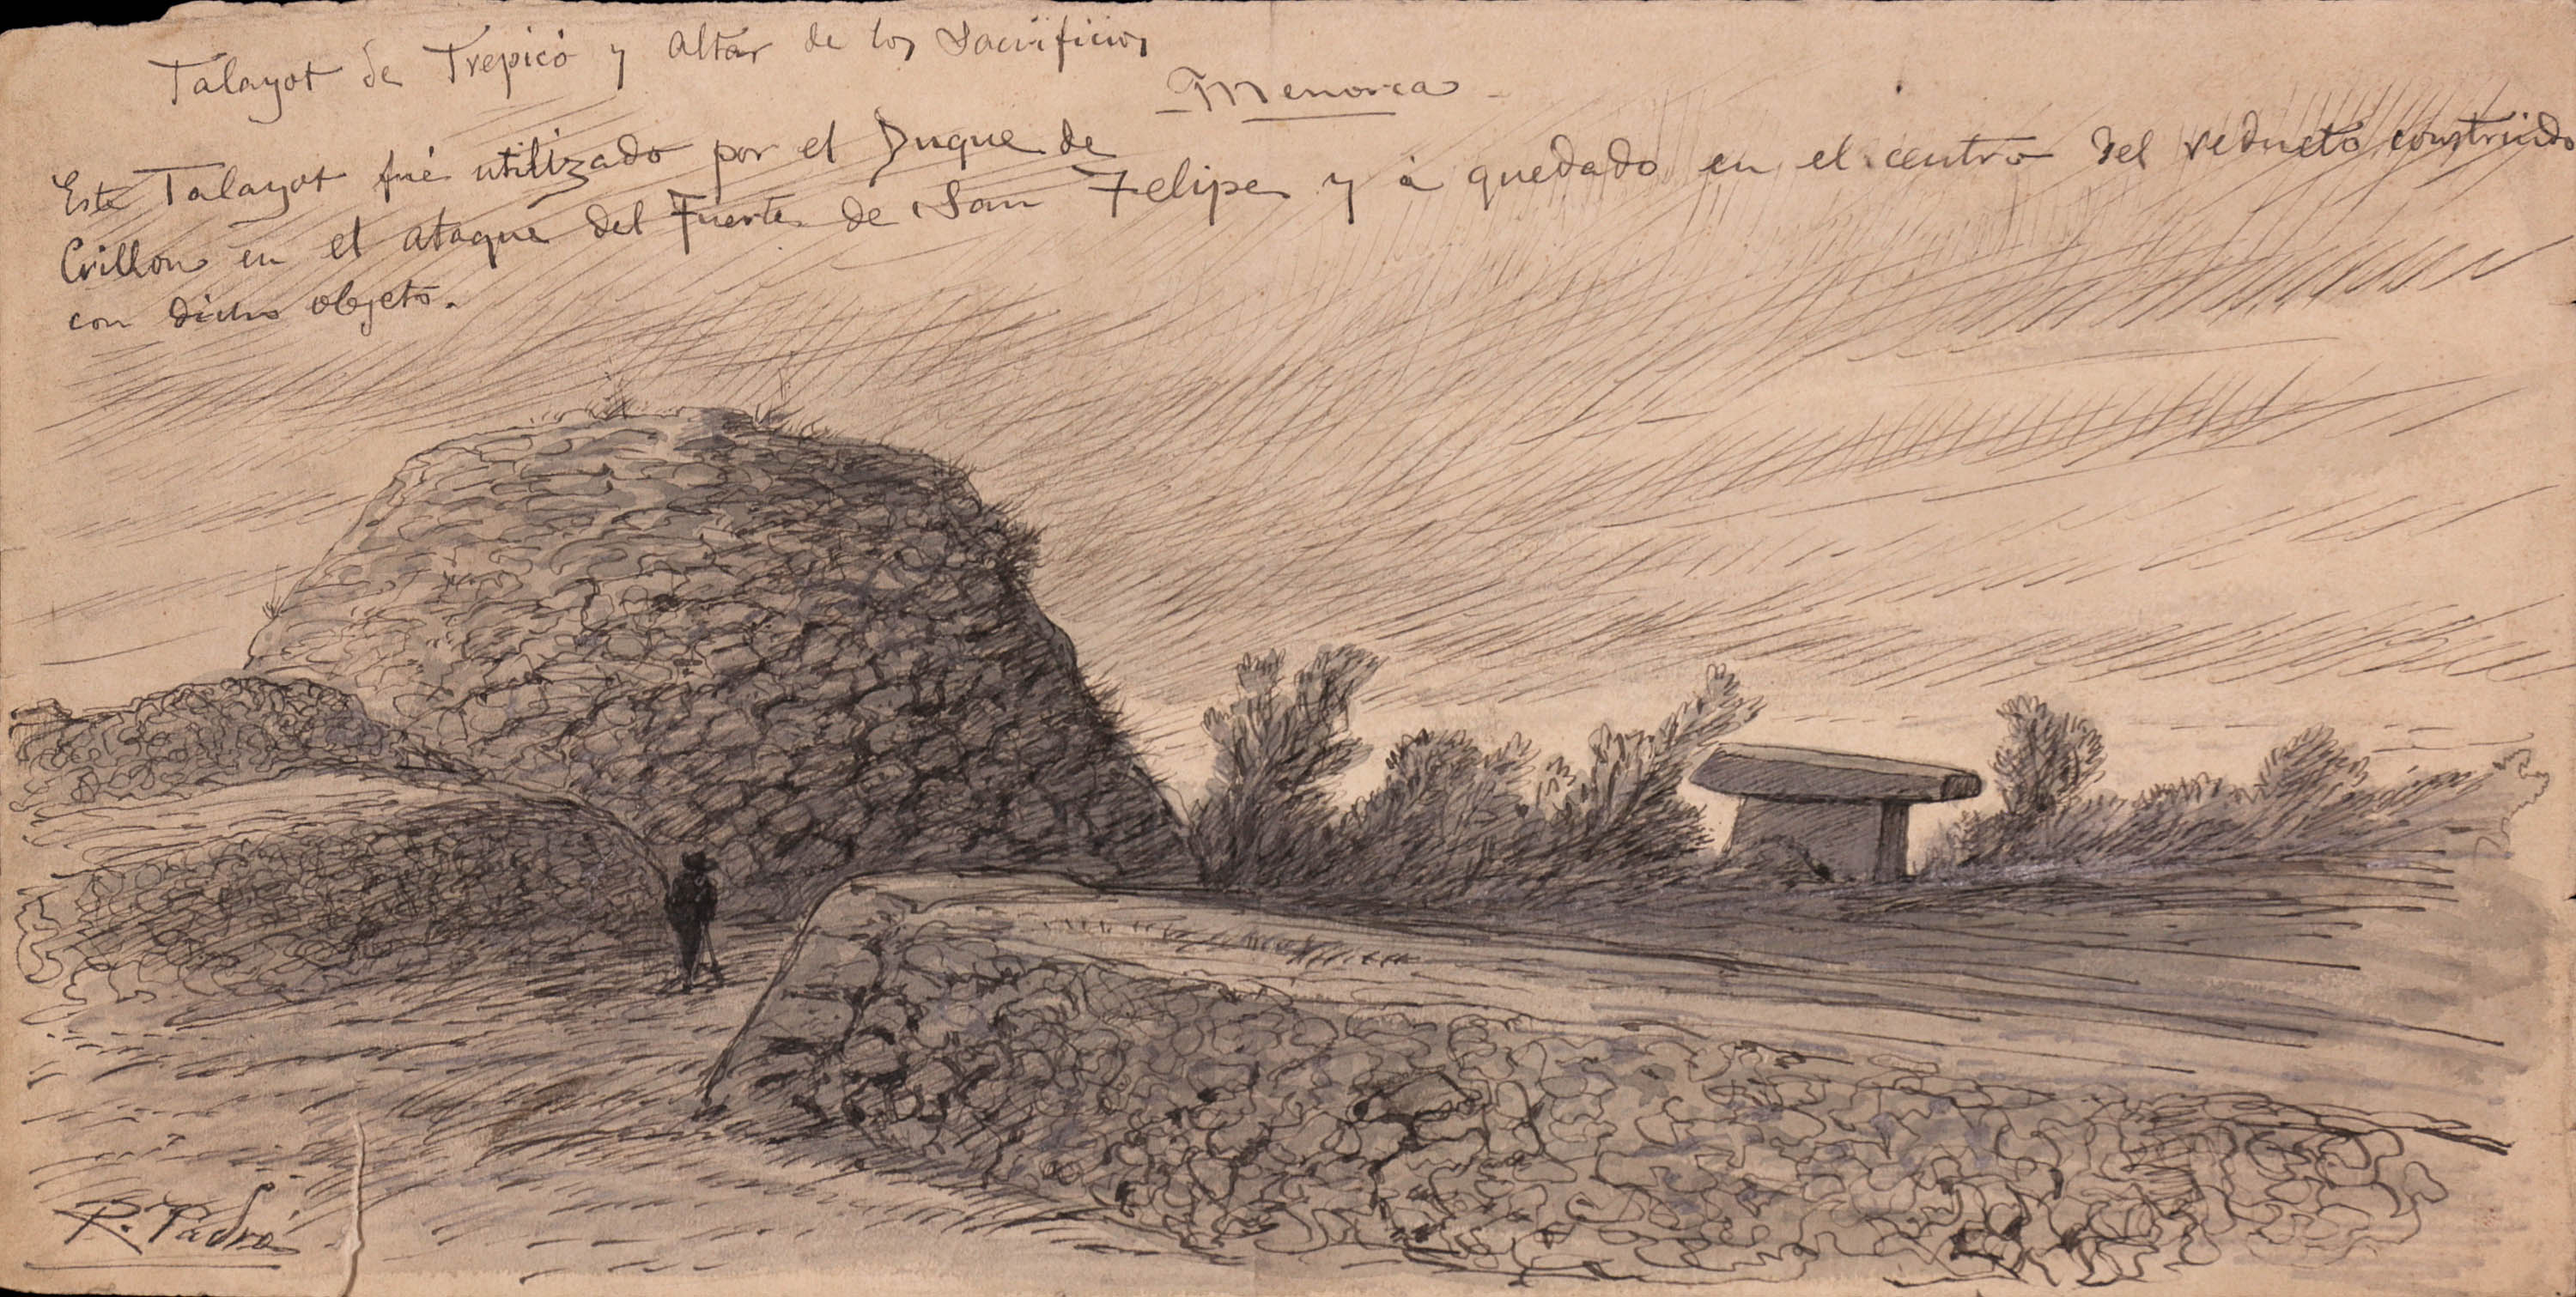 Talayot de Trepicó y Altar de los Sacrificios
Menorca
Este Talayot fué utilizado por el Duque de
Crillon en el ataque del Fuerte de San Felipe y á quedado en el centro del reducto construido
con dicho objeto.
R. Padró